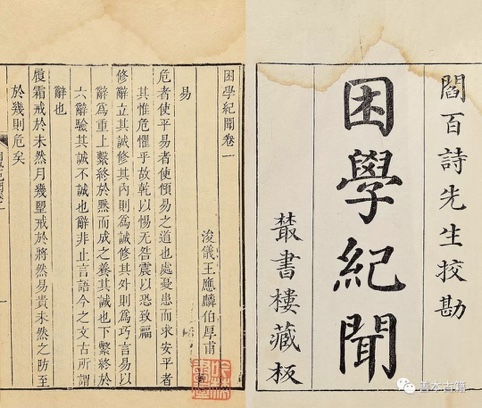 閻百詩先生挍勘
困學紀聞
叢書樓藏板
困學紀聞卷一
浚儀王應麟伯厚甫
易
危者使平易者使傾易之道也處憂患而求安平者
其惟危懼乎故乾以惕无咎震以恐致福
修辭立其誠修其內則爲誠修其外則爲巧言易以
辭爲重上繫終於黙而成之養其誠也下繫終於
六辭驗其誠不誠也辭非止言語今之文古所謂
辭也
履霜戒於未然月幾朢戒於將然易貴未然之防至
於幾則危矣
善本古籍